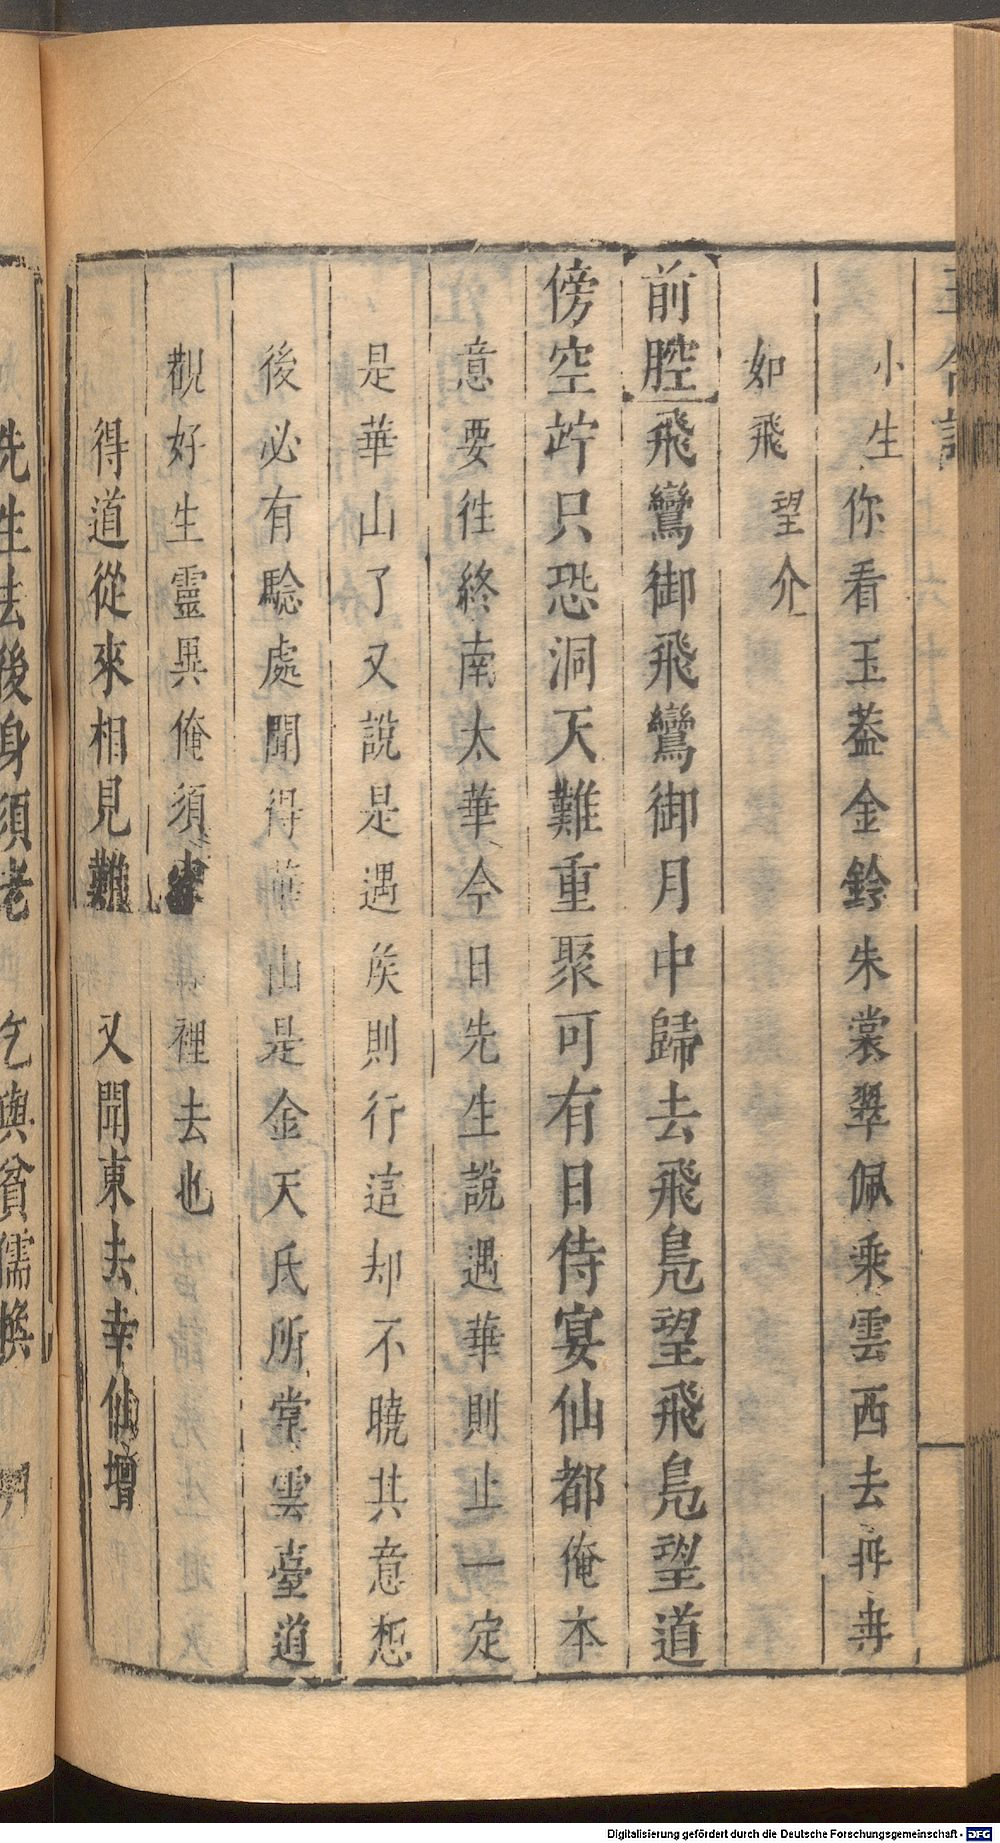 小生
你看玉葢金鈴朱裳翠佩乘雲西去冉冉
如飛
望介
前腔飛鸞御飛鸞御月中歸去飛鳧望飛鳧望道
傍空竚只恐洞天難重聚可有日侍宴仙都俺本
意要徃終南太華今日先生說遇華則止一定
是華山了又說是遇矦則行這却不曉其意想
後必有驗處聞得華山是金天氏所掌雲臺道
觀好生靈異俺須 裡去也
得道從來相見難 又聞東去幸仙壇
先生去後身須老 乞與貧儒換
Digitalisierung gefördert durch die Deutsche Forschungsgemeinschaft - DFG